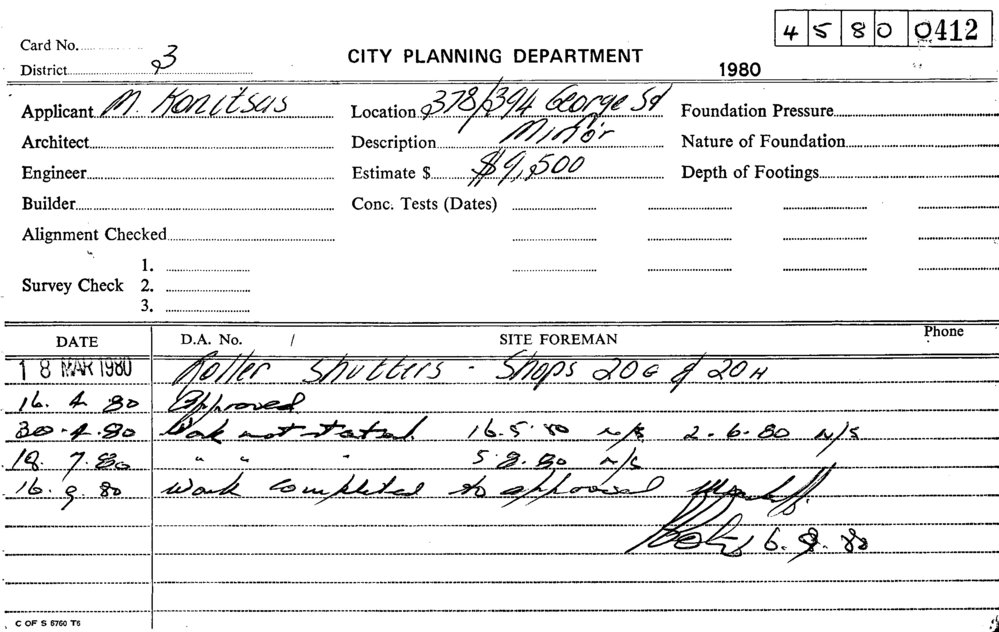 4 5 8 0 0412
Card No.
District 3
CITY PLANNING DEPARTMENT
1980
Applicant M. Konitsas
Location 378/394 George St
Foundation Pressure
Architect
Description Minor
Nature of Foundation
Engineer
Estimate $ $9,500
Depth of Footings
Builder
Conc. Tests (Dates)
Alignment Checked
Survey Check
1.
2.
3.
DATE D.A. No. / SITE FOREMAN Phone
18 MAR 1980 Roller Shutters - Shops 20G & 20H
16. 4. 80 Approved
30.4.80 Work not started. 16.5.80 N/S 2.6.80 N/S
18. 7. 80 " " " 5 8.80 N/S
16. 9. 80 Work completed to approval
6. 9. 80
C OF S 6760 T6